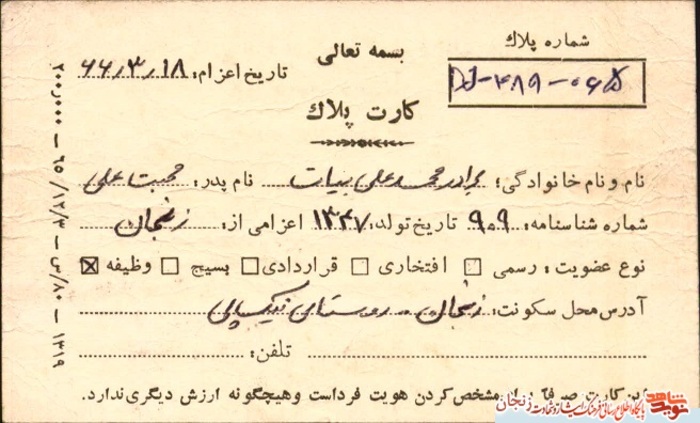 بسمه تعالی
شماره پلاك
DJ-489-065
تاریخ اعزام: ۶۶٫۳٫۱۸
کارت پلاك
نام و نام خانوادگی: برادر محمدعلی بیات نام پدر: محبت علی
شماره شناسنامه: ۹۰۹ تاریخ تولد: ۱۳۴۷ اعزامی از: زنجان
نوع عضویت: رسمی افتخاری قراردادی بسیج وظیفه
آدرس محل سکونت: زنجان - روستای
تلفن:
این کارت صرفاً برای مشخص کردن هویت فرد است و هیچگونه ارزش دیگری ندارد.
۲۰۰٫۰۰۰ — ۶۵/۱۲/۳ — س/۸۰ — ۱۳۱۹
نوید شاهد
پایگاه اطلاع رسانی فرهنگ ایثار و شهادت زنجان